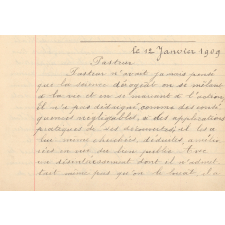 le 12 Janvier 1909
Pasteur
Pasteur n'avait jamais pensé
que la science dérogeât en se mêlant
à la vie et en se mariant à l'action
Il n'a pas dédaigné, comme des conté
quences négligeables, des applications
pratiques de ses découvertes, il les a
lui même cherchées, déduites, amélio
rées en vue du bien public. Avec
un désintéressement dont il n'admet
tait même pas qu'on le louât, il a